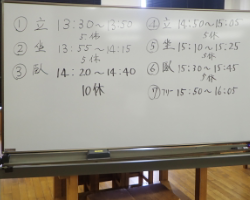 ① 立 13:30～13:50
5休
② 坐 13:55～14:15
5休
③ 臥 14:20～14:40
10休
④ 立 14:50～15:05
5休
⑤ 坐 15:10～15:25
5休
⑥ 臥 15:30～15:45
5休
⑦ フリー 15:50～16:05